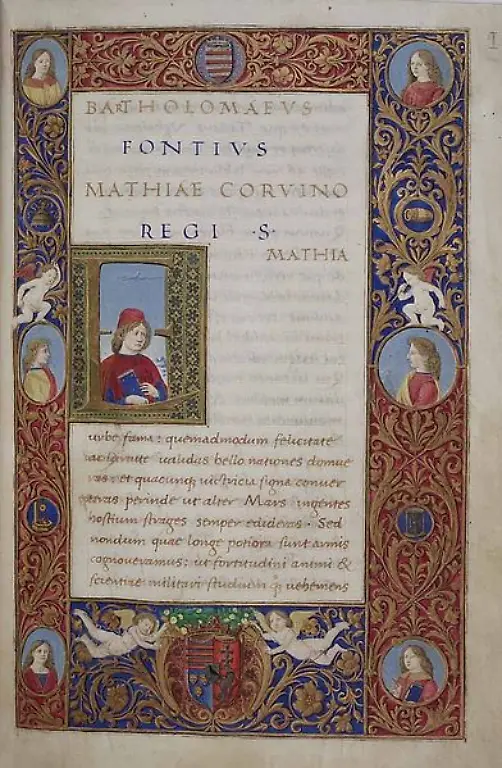 BARTHOLOMAEVS
FONTIVS
MATHIAE CORVINO
REGI ·S·
MATHIA
urbe fama: quemadmodum felicitate
ac virtute validas bello nationes domue
ras: et quacunq; victricia signa conver
teras perinde ut alter Mars ingentes
hostium strages semper edideras. Sed
nondum quae longe potiora sunt armis
cognoveramus: ut fortitudini animi &
scientiae militari studium vehemens